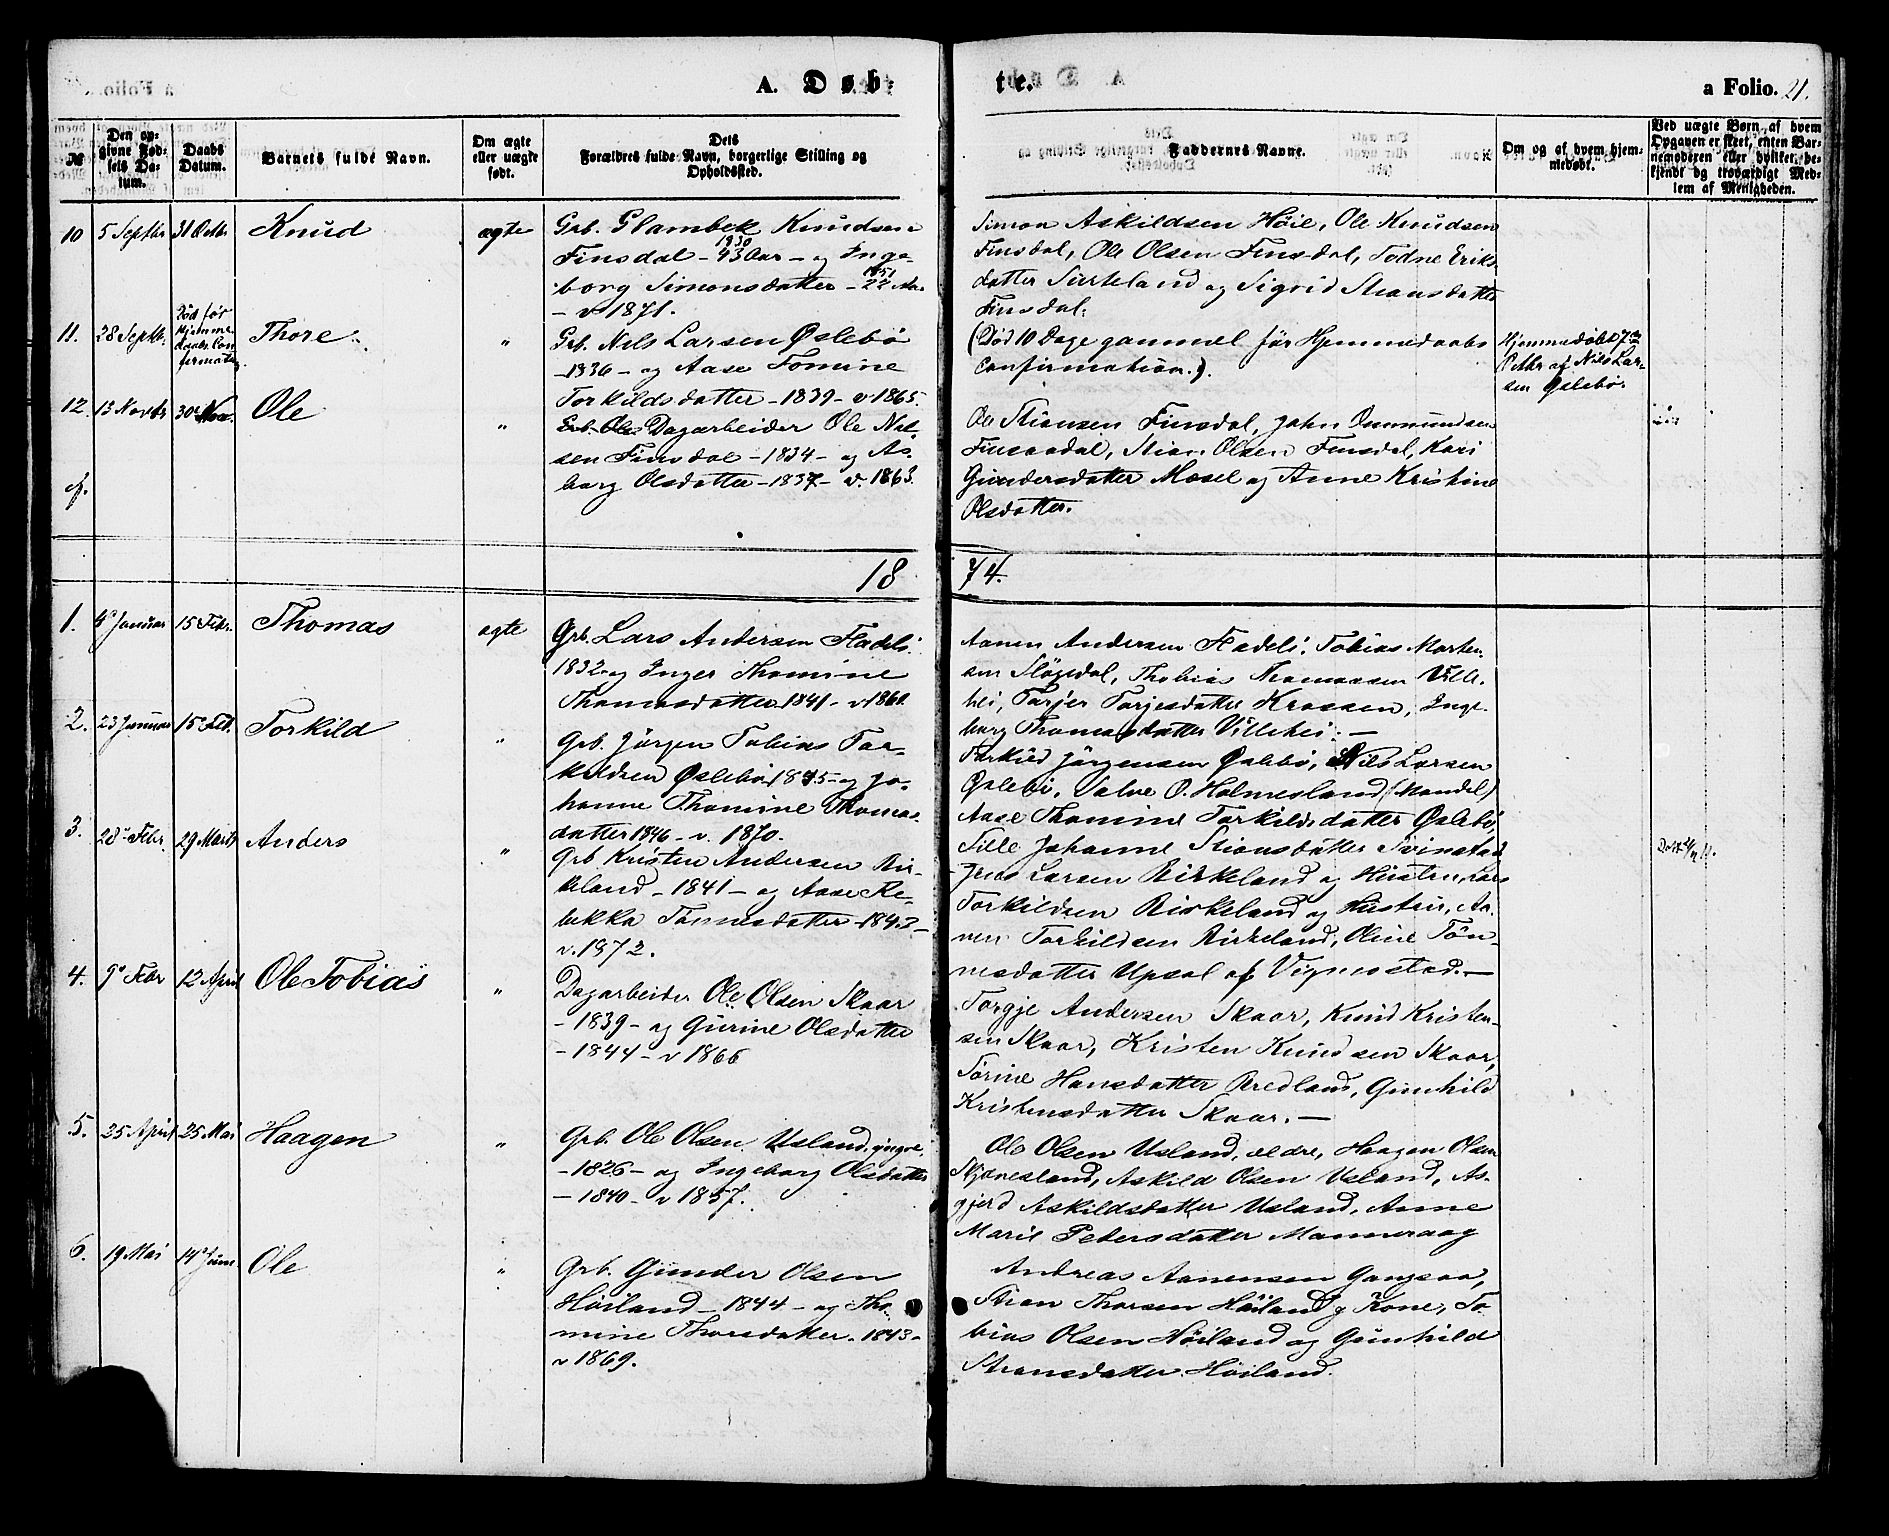 A. Døb-
te.
a Folio. 21.
№
Den opgivne Fødsels Datum.
Daabs Datum.
Barnets fulde Navn.
Om ægte eller uægte født.
Dets Forældres fulde Navn, borgerlige Stilling og Opholdssted.
Faddernes Navne.
Om og af hvem hjemmedøbt.
Ved uægte Børn, af hvem Opgaven er skeet, enten Barnemoderen eller hvilket bekjendt og troværdigt Medlem af Menigheden.
10 5 Septbr 31 Octbr Knud ægte
Grb. Glambek Knudsen
1830
Finsdal - 43 Aar - og Inge-
1851
borg Simonsdatter - 22 Aar
- v 1871.
Simon Askildsen Høie, Ole Knudsen
Finsdal, Ole Olsen Finsdal, Todne Eriks
datter Surteland og Sigrid Stiansdatter
Finsdal.
11. 28 Septbr. Død før Hjemmedaabs Confirmation Thore "
Grb. Nils Larsen Øslebø
- 1836 - og Aase Tomine
Torkildsdatter - 1839 - v 1865.
(Død 10 Dage gammel før Hjemmedaabs
Confirmation.).
Hjemmedøbt 7de
Octbr af Nils Lar-
sen Øslebø.
12. 13 Novbr 30 Nov. Ole "
Dagarbeider Ole Nil-
sen Finsdal - 1834 - og As-
borg Olsdatter - 1837 - v. 1863.
Ole Stiansen Finsdal, John Ommundsen
Finsdal, Stian Olsen Finsdal, Kari
Gundersdatter Mosel og Anne Kristine
Olsdatter.
18
74.
1. 4 Januar 15 Febr. Thomas ægte
Grb. Lars Andersen Fladeli
1832 og Inger Thomine
Thomasdatter 1841 - v 1860
Aanen Andersen Fladeli, Tobias Morten-
sen Sløgedal, Thobias Thomassen Ville-
hei, Tarjer Tarjesdatter Krossen, Inge-
borg Thomasdatter Villehei. -
2. 23 Januar 15 Feb. Torkild "
Grb. Jørgen Tobias Tor-
kildsen Øslebø 1845 - og Jo-
hanne Thomine Thomas-
datter 1846 - v. 1870.
Torkild Jørgensen Øslebø, Nils Larsen
Øslebø, Salve O. Holmesland (Mandal)
Aase Thomine Torkildsdatter Øslebø,
Sille Johanne Stiansdatter Svinstad
3. 28 Febr. 29 Marts Anders "
Grb Kristen Andersen Bir-
keland - 1841 - og Aase Re-
bekka Tønnesdatter - 1842 -
v. 1872.
Jens Larsen Birkeland og Hustru, Lars
Torkildsen Birkeland og Hustru, Aa-
nen Torkildsen Birkeland, Oline Tøn-
nesdatter Upsal af Vigmostad. -
4. 9 Febr 12 April Ole Tobias "
Dagarbeider Ole Olsen Skaar
- 1839 - og Gurine Olsdatter
- 1844 - v 1866
Torgje Andersen Skaar, Knud Kristen-
sen Skaar, Kristen Knudsen Skaar,
Sørine Hansdatter Bredland, Gunhild
Kristensdatter Skaar. -
5. 25 April 25 Mai Haagen "
Grb. Ole Olsen Usland, yngre,
- 1826 - og Ingeborg Olsdatter
- 1840 - v 1857.
Ole Olsen Usland, ældre, Haagen Olsen
Skjønesland, Askild Olsen Usland, As-
gjerd Askildsdatter Usland, Anne
Marie Pedersdatter Manneraag
6. 19 Mai 14 Juni Ole "
Grb. Gunder Olsen
Høiland - 1844 - og Tho-
mine Thorsdatter. 1843 -
v 1869.
Andreas Aanensen Gangsaa,
Stian Thorsen Høiland og Kone, To-
bias Olsen Høiland og Gunhild
Stiansdatter Høiland.